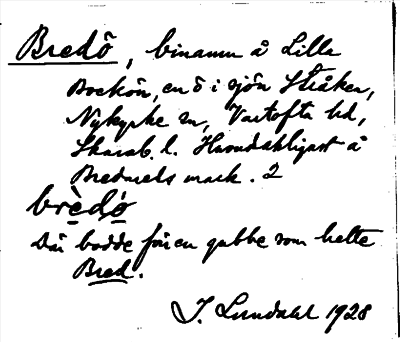 Bredö, binamn å Lilla
Bockön, en ö i sjön Stråken,
Nykyrke sn, Vartofta hd,
Skarab. l. Huvudsakligast å
Bredareds mark. 2
brèdö
Där bodde förr en gubbe som hette
Bred.
J. Lundahl 1928